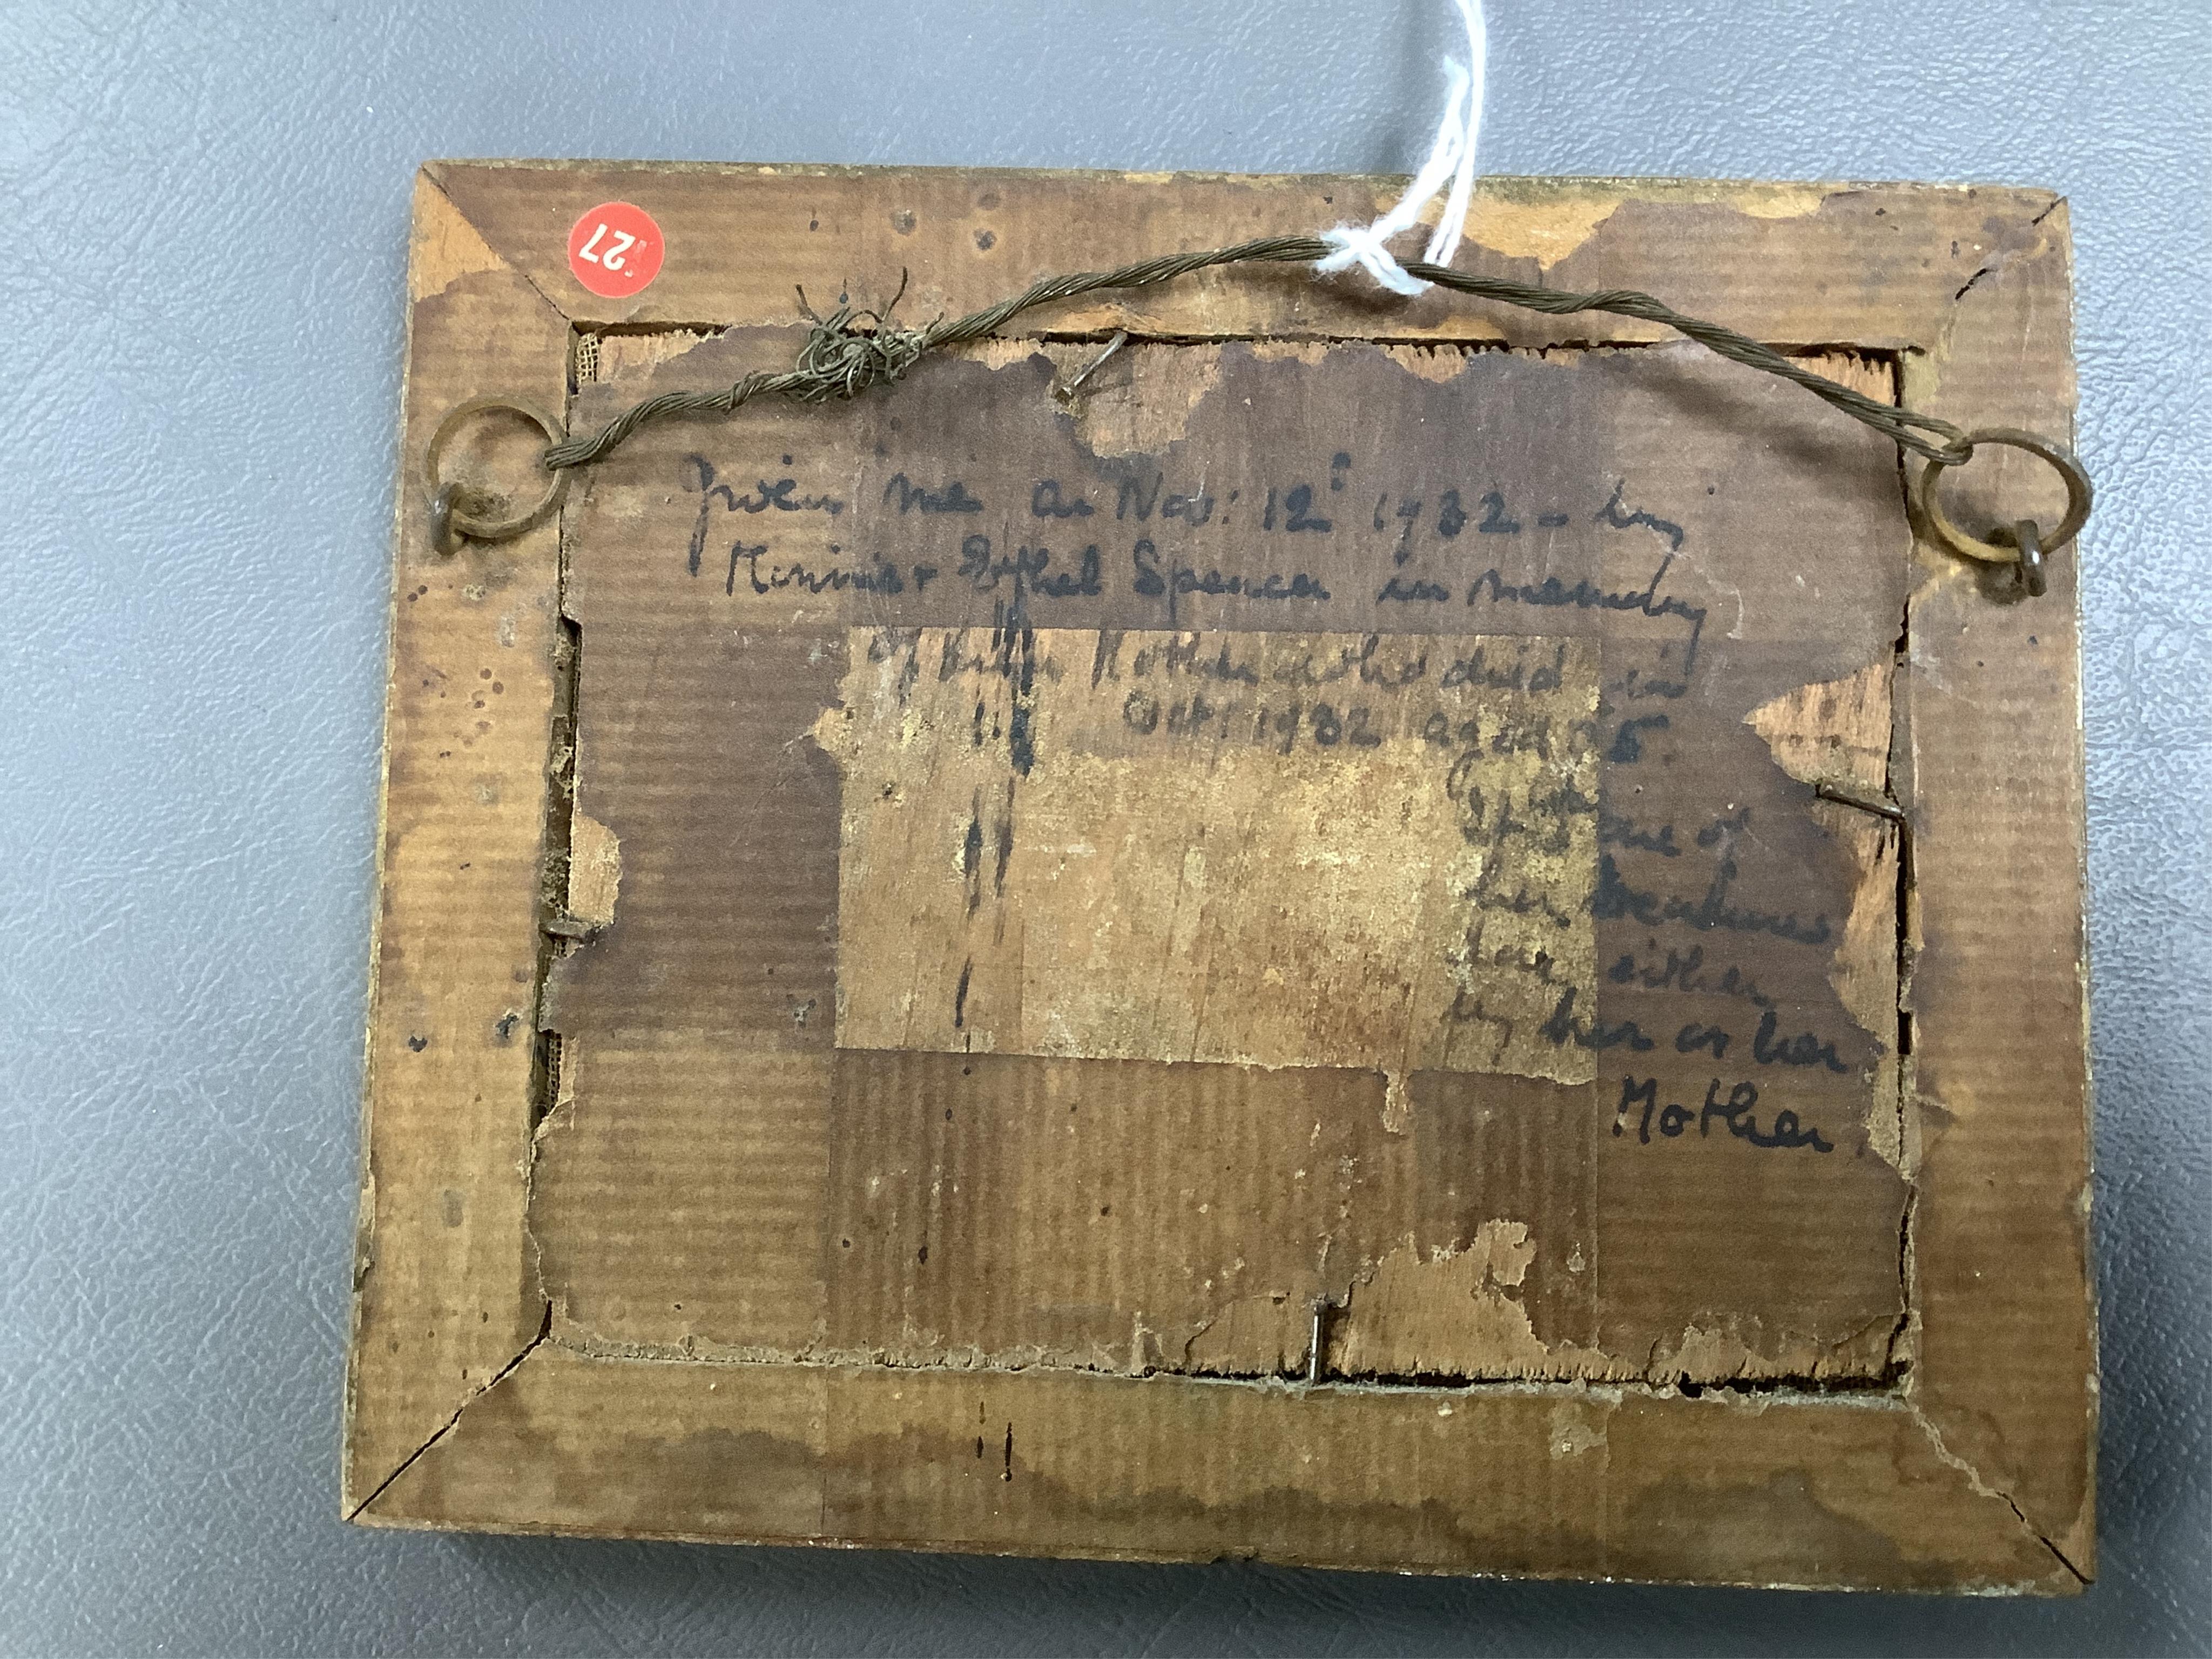 27
Given me on Nov: 12 1932 - by
Minnie + Ethel Spencer in memory
of their Mother who died in
Oct: 1932 aged 5
one of
her treasures
done either
by her or her
Mother